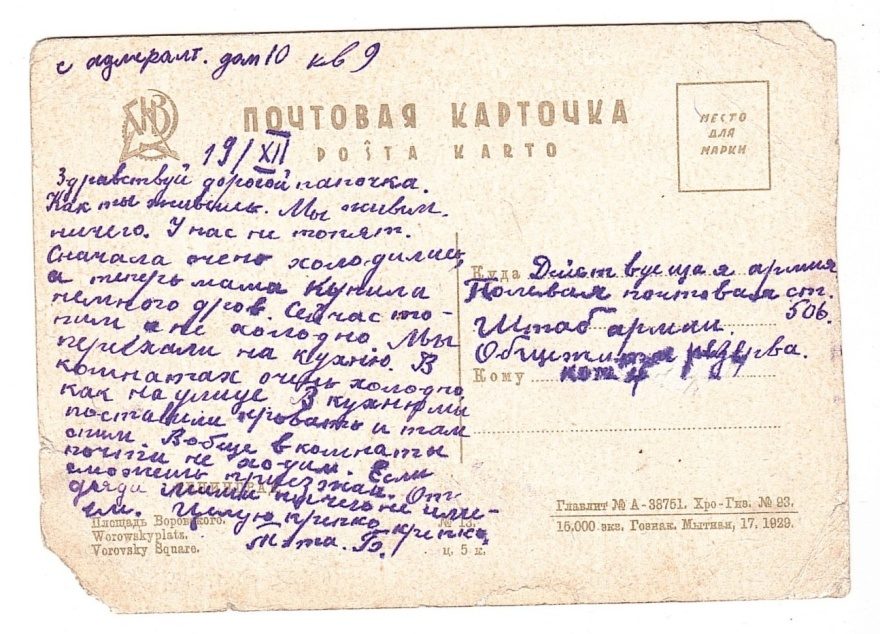 с адмиралт. дом 10 кв 9
ПОЧТОВАЯ КАРТОЧКА
POŜTA KARTO
МЕСТО
ДЛЯ
МАРКИ
19/XII
Здравствуй дорогой папочка.
Как ты живешь. Мы живим.
ничего. У нас не топят.
Сначала очень холодились,
а теперь мама купила
немного дров. Сейчас то-
пим и не холодно. Мы
переехали на кухню. В
комнатах очень холодно
как на улице В кухню мы
поставили кровать и там
спим. Вобще в комнаты
почти не ходим. Если
сможешь приезжай. От
дяди Миши ничего не име-
ем. Целую крепко крепко.
Тата. Б.
Куда Действующая армия
Полевая почтовая ст.
506.
Штаб армии.
Общежитие резерва.
Кому ком 4
ЛЕНИНГРАД
Площадь Воровского.
Worowskyplatz.
Vorovsky Square.
№ 13.
ц. 5 к.
Главлит № А-38751. Хро-Гиз. № 93.
15.000 экз. Гознак. Мытная, 17. 1929.